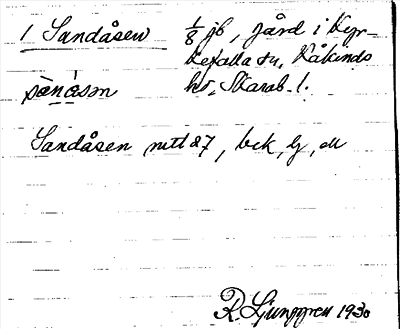 1 Sandåsen 1/8 jb, gård i Kyr-
kefalla sn, Kåkinds
sànásm hd, Skarab. l.
Sandåsen mtl 27, bck, lj, all
R. Ljunggren 1930